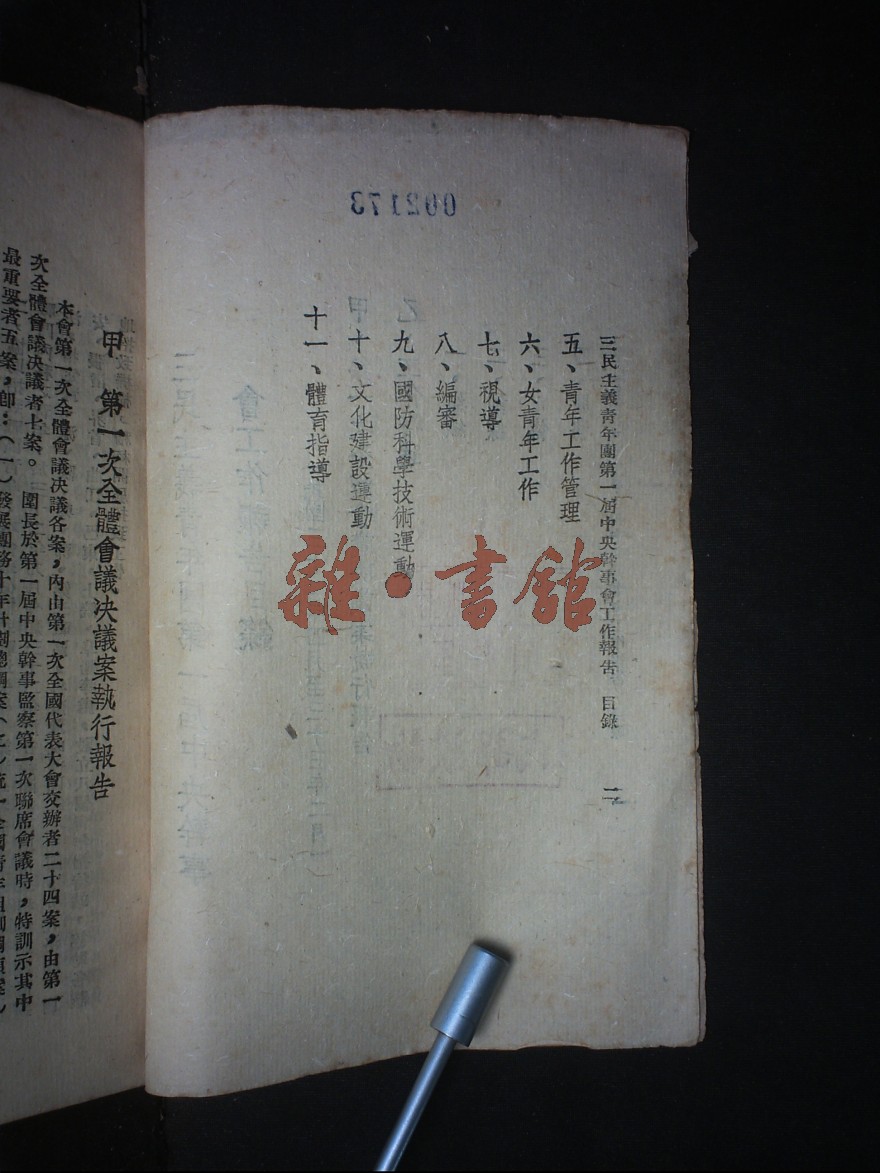 002173
三民主義靑年團第一屆中央幹事會工作報吿 目錄 二
五、靑年工作管理
六、女靑年工作
七、視導
八、編審
九、國防科學技術運動
十、文化建設運動
十一、體育指導
雜·書館
甲 第一次全體會議決議案執行報吿
本會第一次全體會議決議各案，內由第一次全國代表大會交辦者二十四案，由第一
次全體會議決議者七案。 團長於第一屆中央幹事監察第一次聯席會議時，特訓示其中
最重要者五案，卽：（一）發展團務十年計劃總綱案（二）統一全國靑年組訓綱領案（